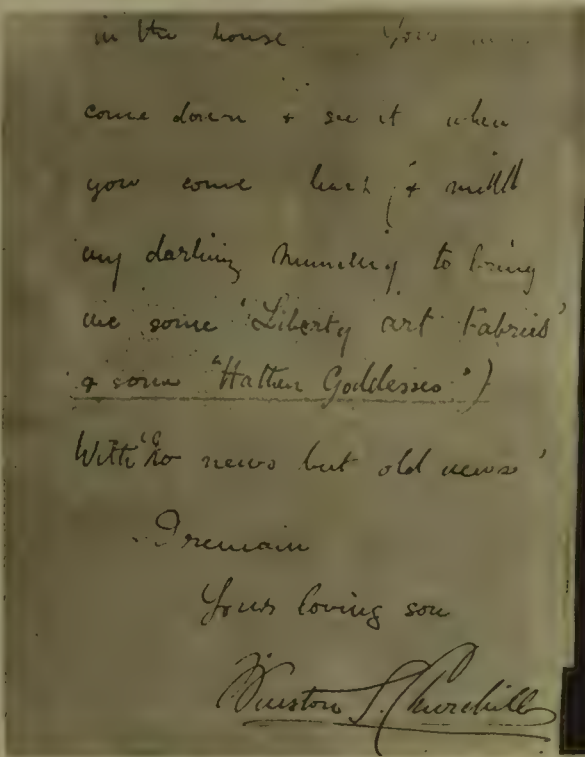 in the house. You
come down & see it when
you come back (& will
my darling mummy to bring
me some 'Liberty art Fabrics'
& some "Hathen Goddesses")
With 'no news but old news'
I remain
Yours loving son
Winston S. Churchill